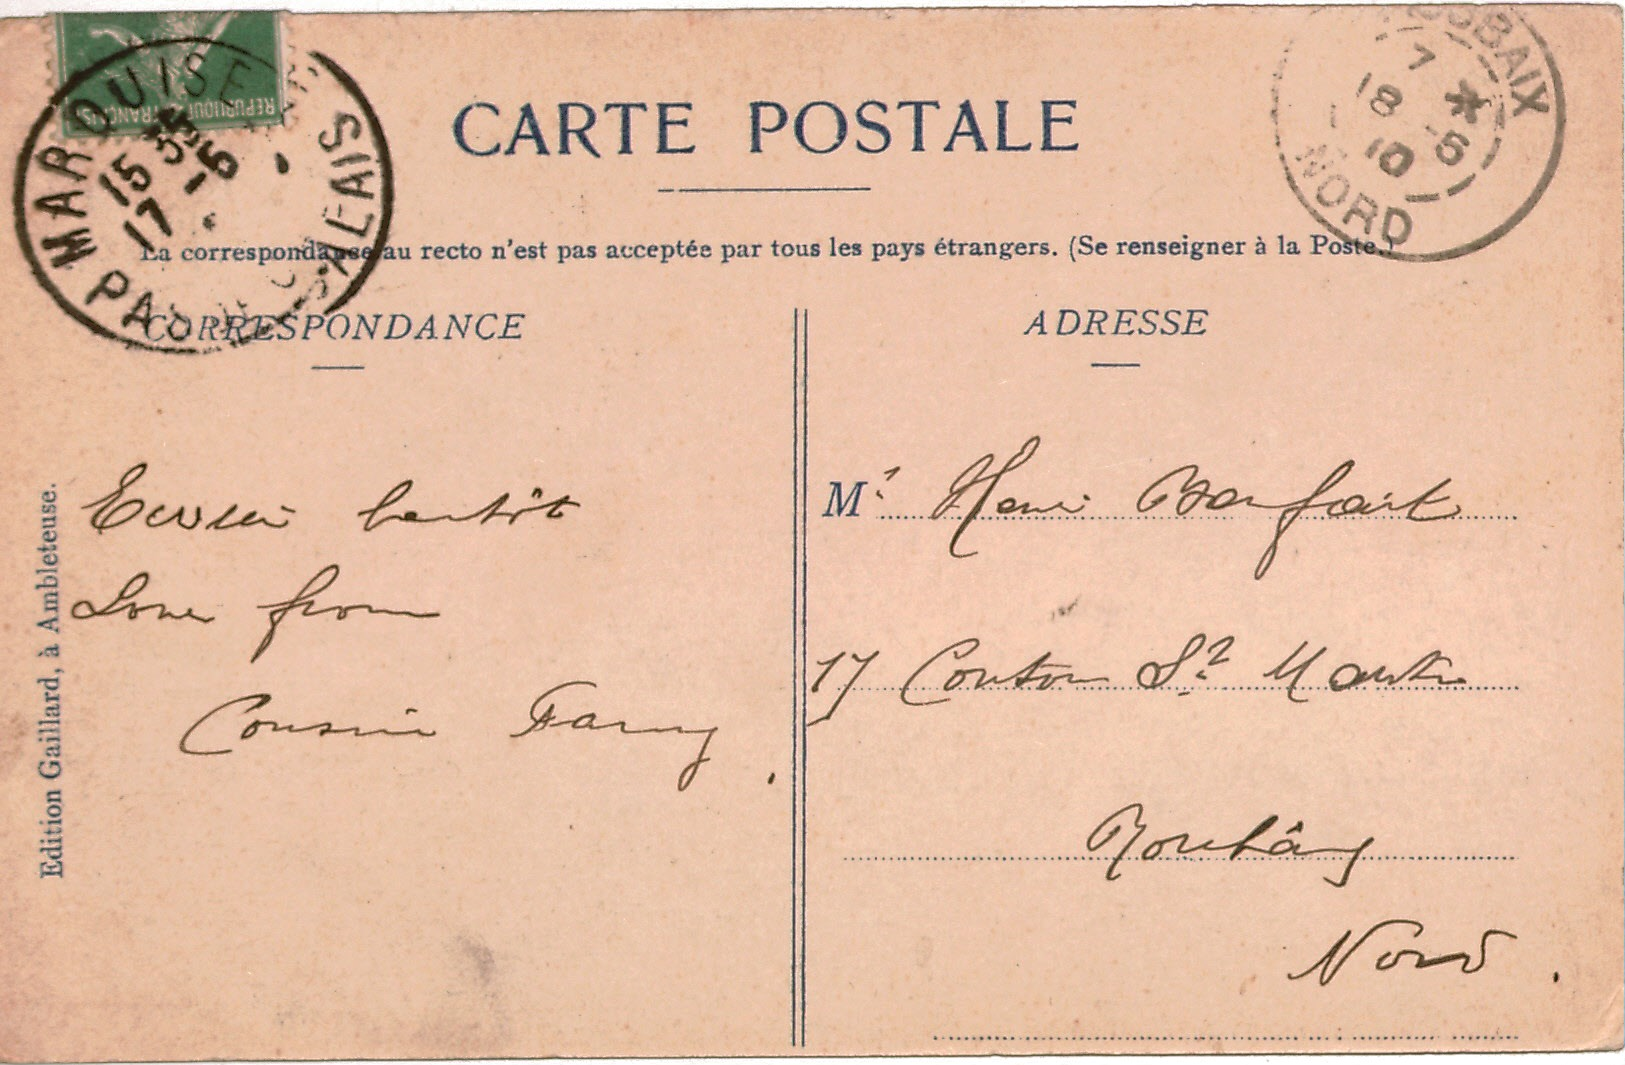 REPUBLIQUE FRANÇAISE
MARQUISE
PAS-DE-CALAIS
15 35
17 -6
ROUBAIX
7 *
18 -6
10
NORD
CARTE POSTALE
La correspondance au recto n'est pas acceptée par tous les pays étrangers. (Se renseigner à la Poste.)
CORRESPONDANCE
Ecrirai bentôt
Love from
Cousin Fanny.
Edition Gaillard, à Ambleteuse.
ADRESSE
Mr Henri
17 Contour St Martin
Roubaix
Nord.